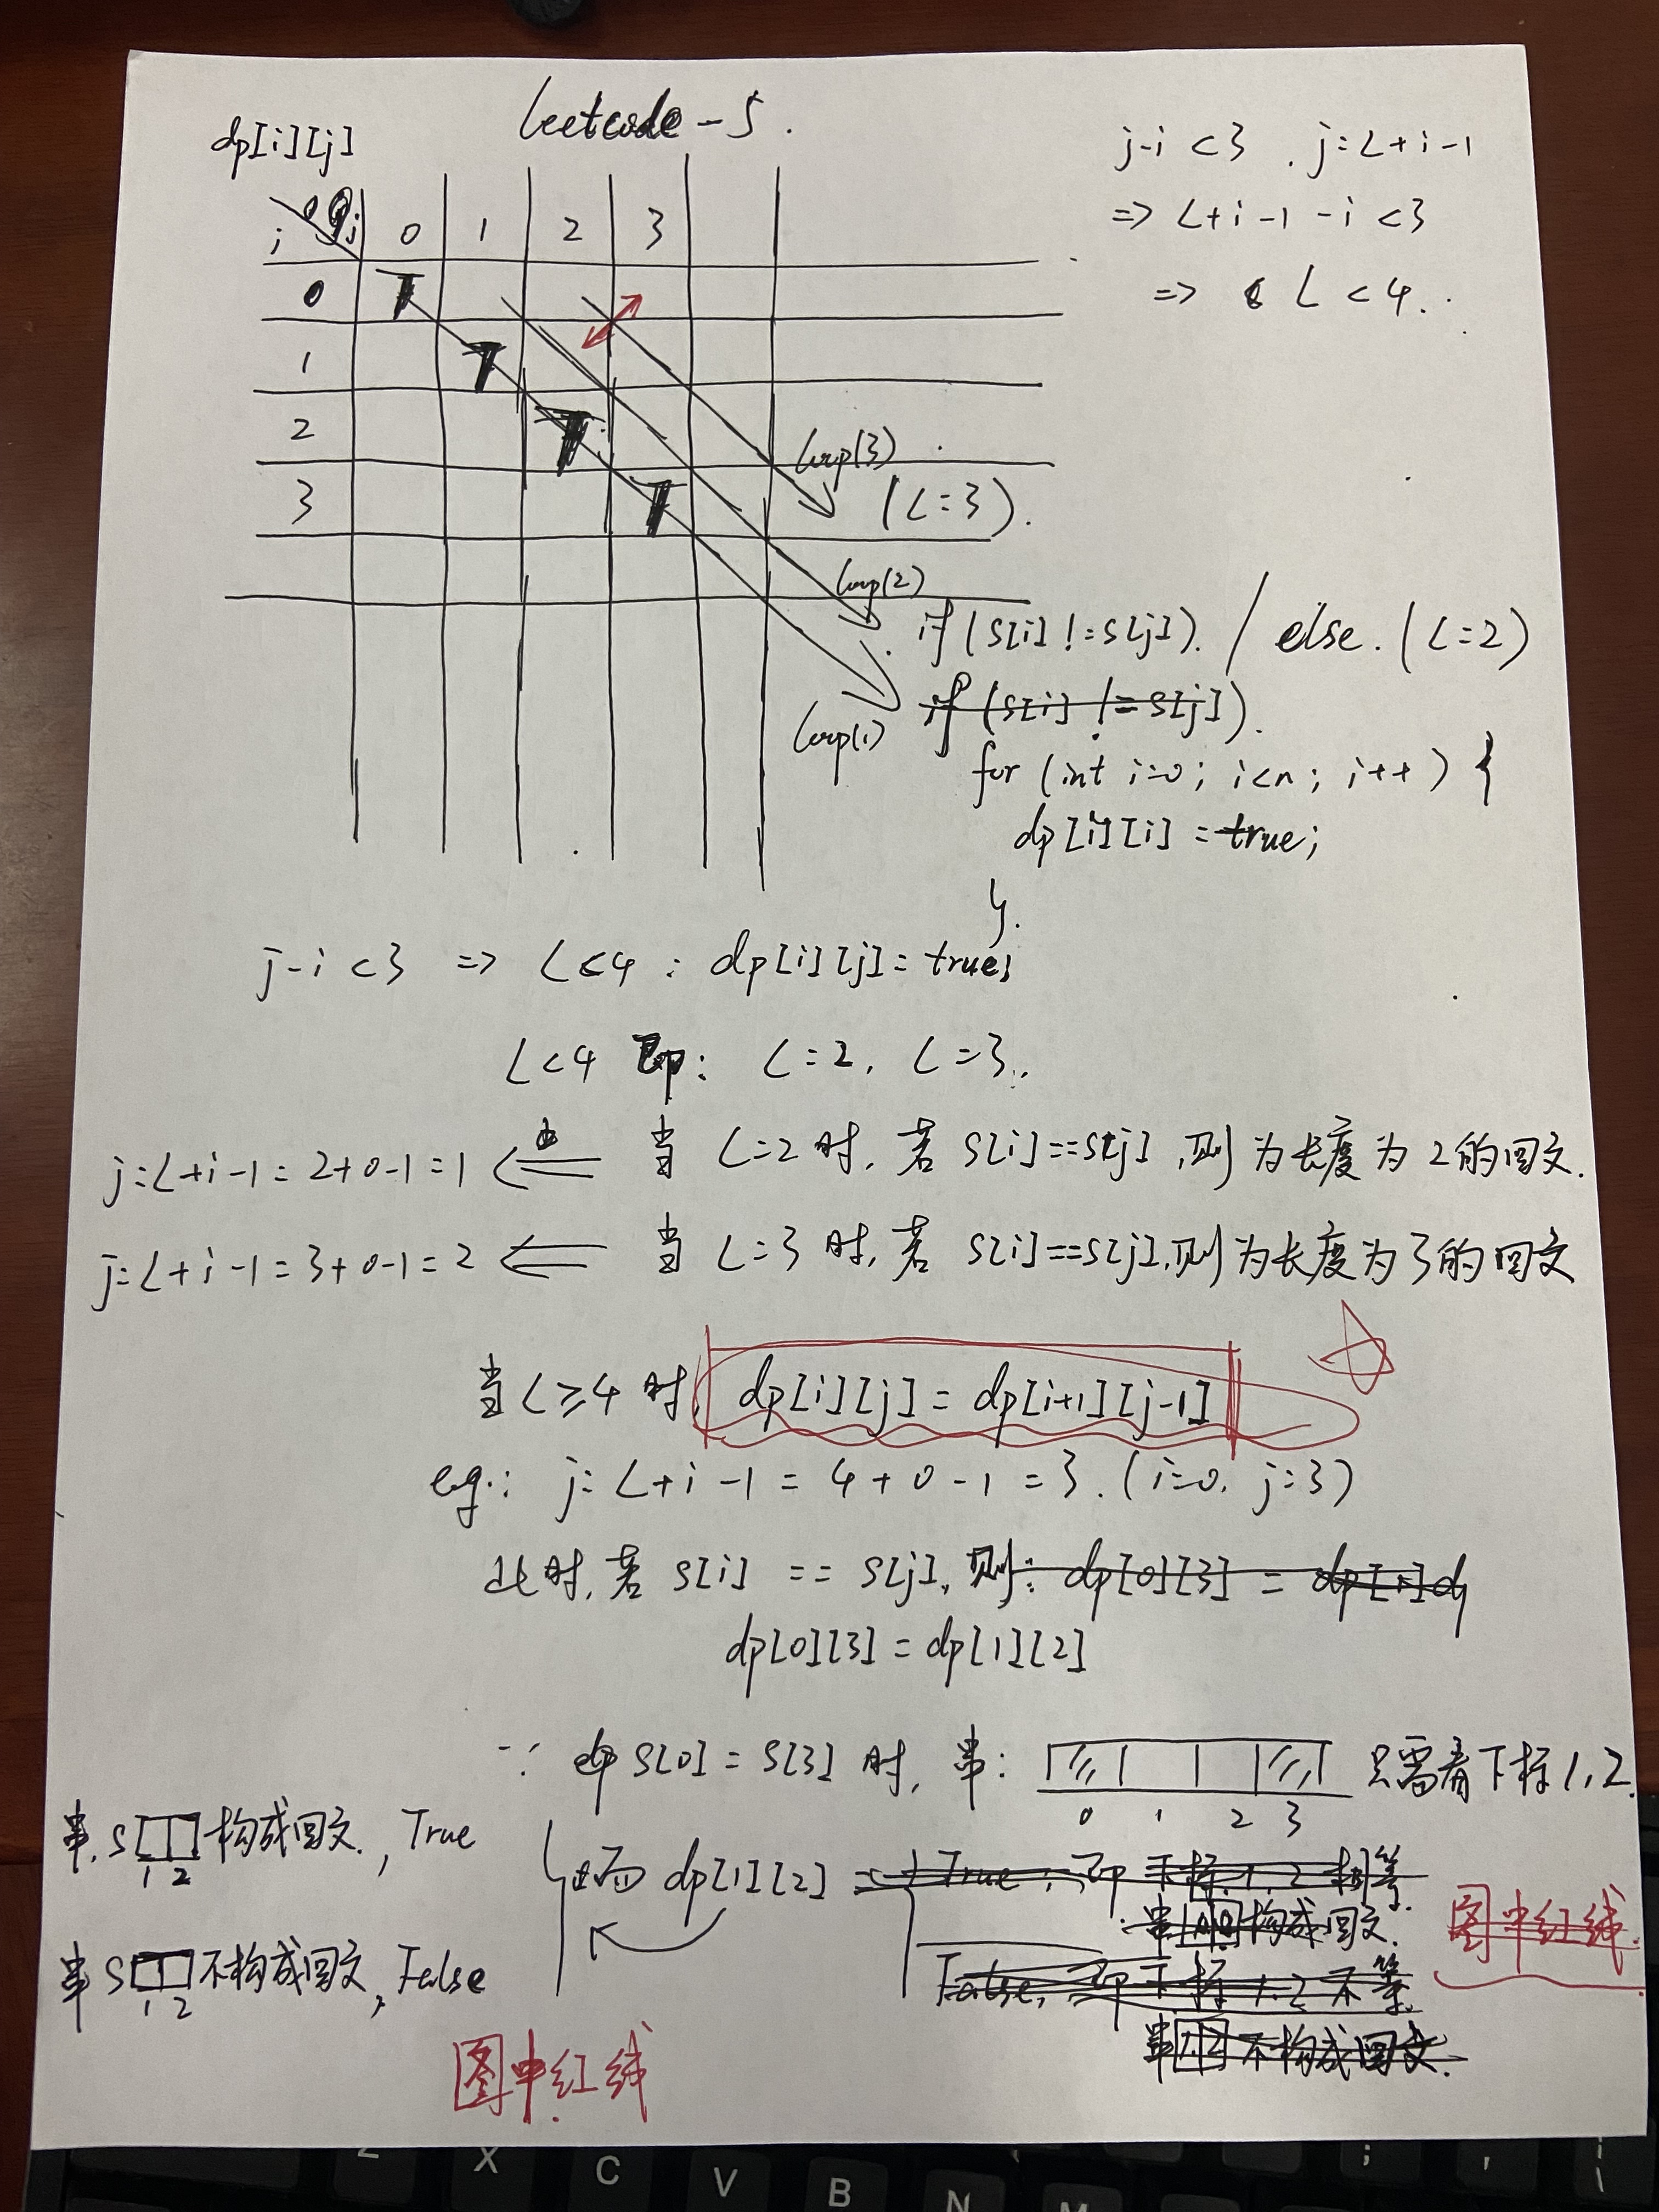 leetcode-5.
dp[i][j]
j-i<3. j=L+i-1
=> L+i-1-i<3
=> L<4.
i j 0 1 2 3
0 T
1 T
2 T
3 T
loop(3)
(L=3).
loop(2)
if(s[i]!=s[j]). / else. (L=2)
loop(1)
if(s[i]!=s[j]).
for(int i=0; i<n; i++){
dp[i][i]=true;
}.
j-i<3 => L<4: dp[i][j]=true;
L<4 即: L=2, L=3.
j=L+i-1=2+0-1=1 <= 当 L=2时, 若 s[i]==s[j], 则为长度为2的回文.
j=L+i-1=3+0-1=2 <= 当 L=3时, 若 s[i]==s[j], 则为长度为3的回文
当L≥4时, dp[i][j]=dp[i+1][j-1]
eg.: j=L+i-1=4+0-1=3. (i=0, j=3)
此时, 若 s[i]==s[j], 则: dp[0][3]=dp[1]d
dp[0][3]=dp[1][2]
∵ s[0]=s[3]时, 串: 只需看下标1,2.
0 1 2 3
串s 构成回文, True
1 2
而 dp[1][2]= True, 即下标1,2相等
串 构成回文.
串s 不构成回文, False
1 2
False, 即下标1,2不等.
串 不构成回文.
图中红线.
图中红线
Z X C V B N M ; ' \